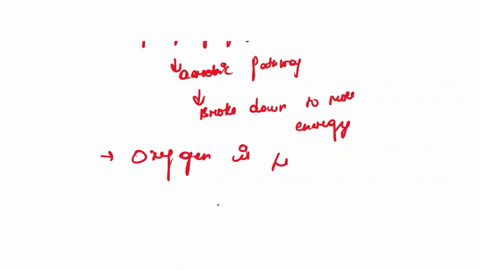 ↓ aerobic Pathway
↓ Broke down to more
energy
→ Oxygen is